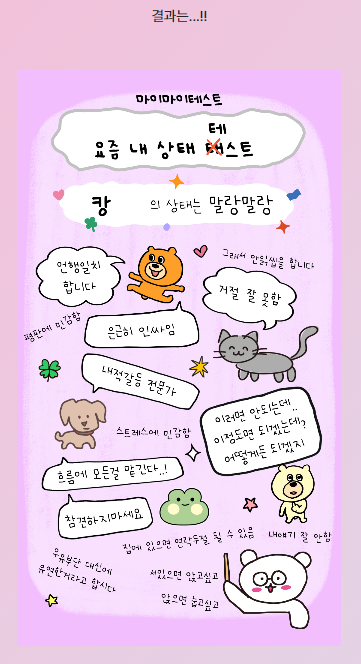 결과는...!!
마이마이테스트
테
요즘 내 상태 태스트
캉 의 상태는 말랑말랑
언행일치
합니다
그래서 안읽씹을 합니다
거절 잘 못함
평판에 민감함
은근히 인싸임
내적갈등 전문가
이러면 안되는데..
이정도면 되겠는데?
어떻게든 되겠지
스트레스에 민감함
흐름에 모든걸 맡긴다..!
참견하지마세요
집에 있으면 연락두절 될 수 있음
내얘기 잘 안함
우유부단 대신에
유연한거라고 합시다
서있으면 앉고싶고
앉으면 눕고싶고